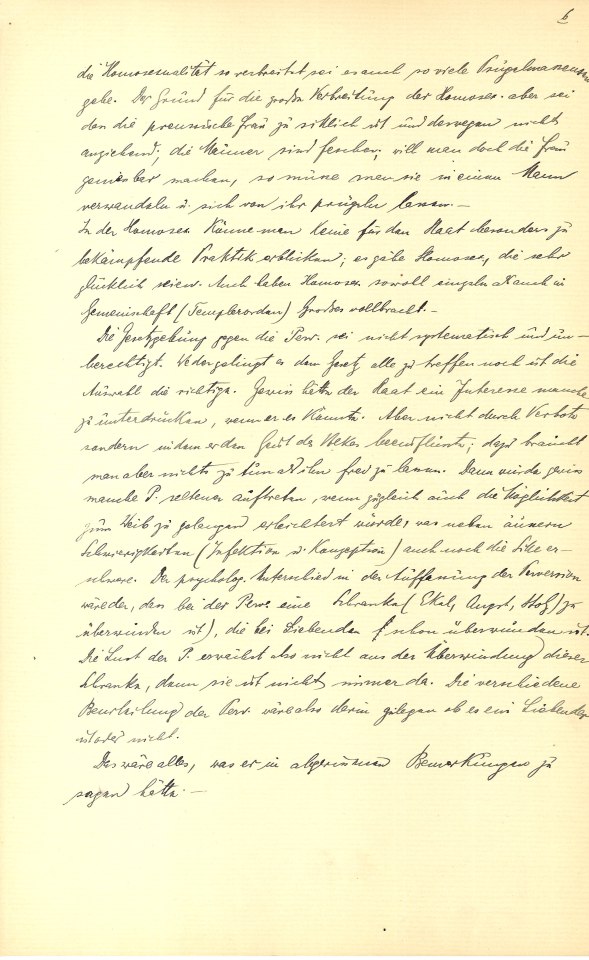 6
die Homosexualität so verbreitet sei es auch so viele Prügelmasochisten
gebe. Der Grund für die große Verbreitung der Homosex. aber sei
dass die preussische Frau zu sittlich ist und deswegen nicht
anziehend; die Männer sind fescher; will man doch die Frau
geniesbar machen, so müsse man sie in einen Mann
verwandeln u. sich von ihr prügeln lassen.—
In der Homosex. Könne man keine für den Staat besonders zu
bekämpfende Praktik erblicken; es gäbe Homosex. die sehr
glücklich seien. Auch haben Homosex. sowohl einzeln als auch in
Gemeinschaft (Templerorden) Großes vollbracht.—
Die Gesetzgebung gegen die Perv. sei nicht systematisch und un-
berechtigt. Weder gelingt es dem Gesetz alle zu treffen noch ist die
Auswahl die richtige. Gewiss hätte der Staat ein Interesse manche
zu unterdrücken, wenn er es könnte. Aber nicht durch Verbote
sondern indem er den Geist des Volkes beeinflusst; dazu braucht
man aber nichts zu tun als ihn frei zu lassen. Dann würden gewiss
manche P. seltener auftreten, wenn zugleich auch die Möglichkeit
zum Weib zu gelangen erleichtert würde, was neben äussern
Schwierigkeiten (Infektion u. Konzeption) auch noch die Sitte er-
schwere. Der psycholog. Unterschied in der Auffassung der Perversion
wäre der, dass bei der Perv. eine Schranke (Ekel, Angst,) zu
überwinden ist), die bei Liebenden schon überwunden ist.
Die Lust der P. erwächst also nicht aus der Überwindung dieser
Schranke, denn sie ist nicht immer da. Die verschiedene
Beurteilung der Perv. wäre also darin gelegen ob es ein Liebender
ist oder nicht.
Das wäre alles, was er in abgerissenen Bemerkungen zu
sagen hätte.—